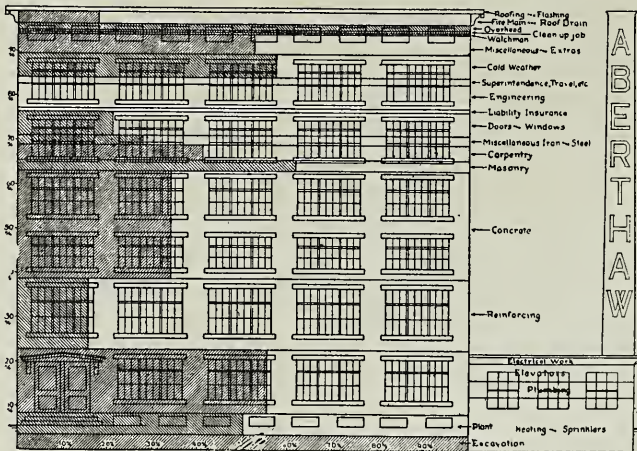 Roofing ~ Flashing
Fire Main ~ Roof Drain
Overhead
Clean up job
Watchman
Miscellaneous ~ Extras
Cold Weather
Superintendence, Travel, etc
Engineering
Liability Insurance
Doors ~ Windows
Miscellaneous Iron ~ Steel
Carpentry
Masonry
Concrete
Reinforcing
ABERTHAW
Electrical Work
Elevators
Plumbing
Heating ~ Sprinklers
Plant
Excavation
10% 20% 30% 40% 60% 70% 80% 90%